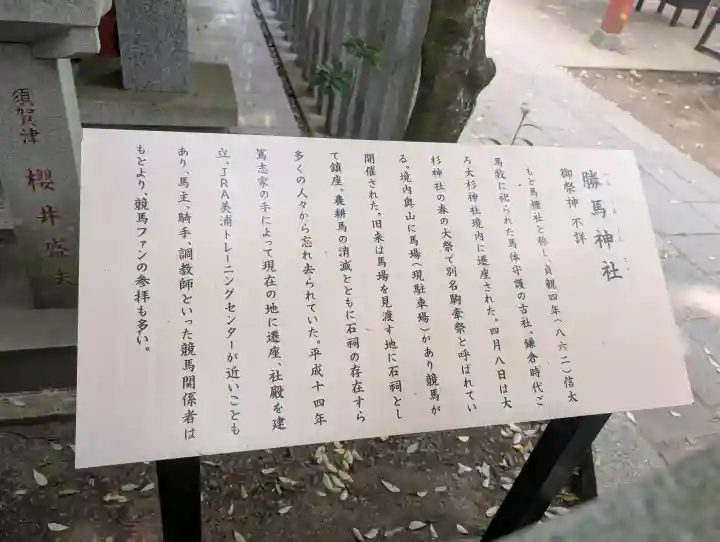 勝馬神社
御祭神 不詳
もと馬櫪社と称し、貞観四年（八六二）信太
馬牧に祀られた馬体守護の古社。鎌倉時代ご
ろ大杉神社境内に遷座された。四月八日は大
杉神社の春の大祭で別名駒牽祭と呼ばれてい
る。境内奥山に馬場（現駐車場）があり競馬が
開催された。旧来は馬場を見渡す地に石祠とし
て鎮座。農耕馬の消滅とともに石祠の存在すら
多くの人々から忘れ去られていた。平成十四年
篤志家の手によって現在の地に遷座、社殿を建
立。JRA美浦トレーニングセンターが近いことも
あり、馬主、騎手、調教師といった競馬関係者は
もとより、競馬ファンの参拝も多い。
須賀津 櫻井盛夫